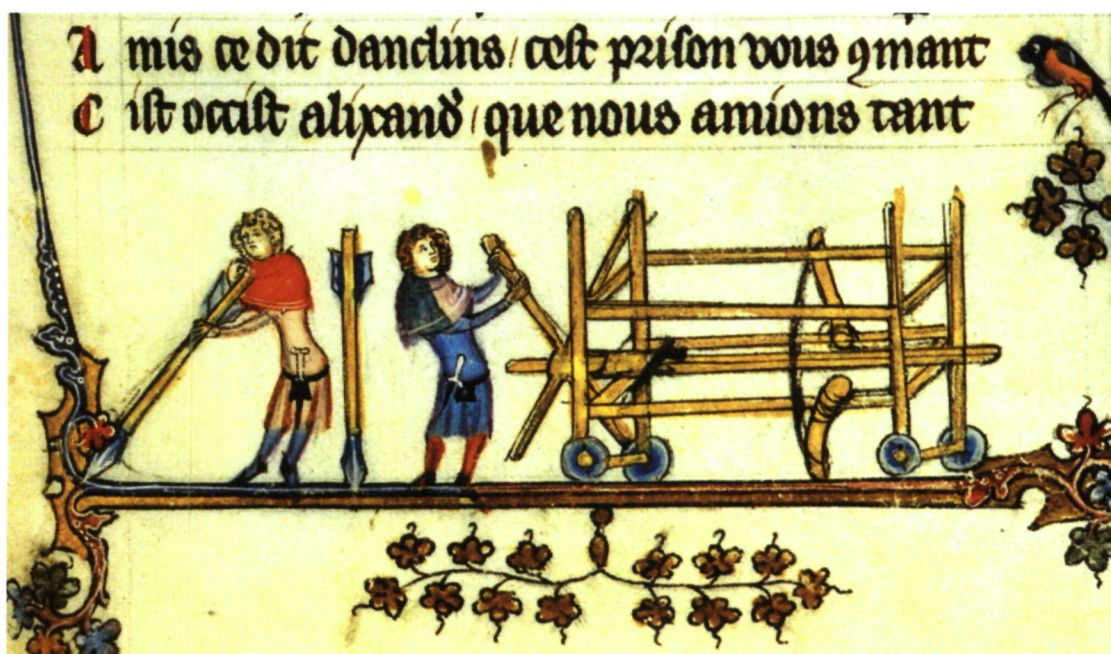 A mis ce dit danclins / cest prison vous ꝯmant
C ist occist alixandˀ / que nous amions tant